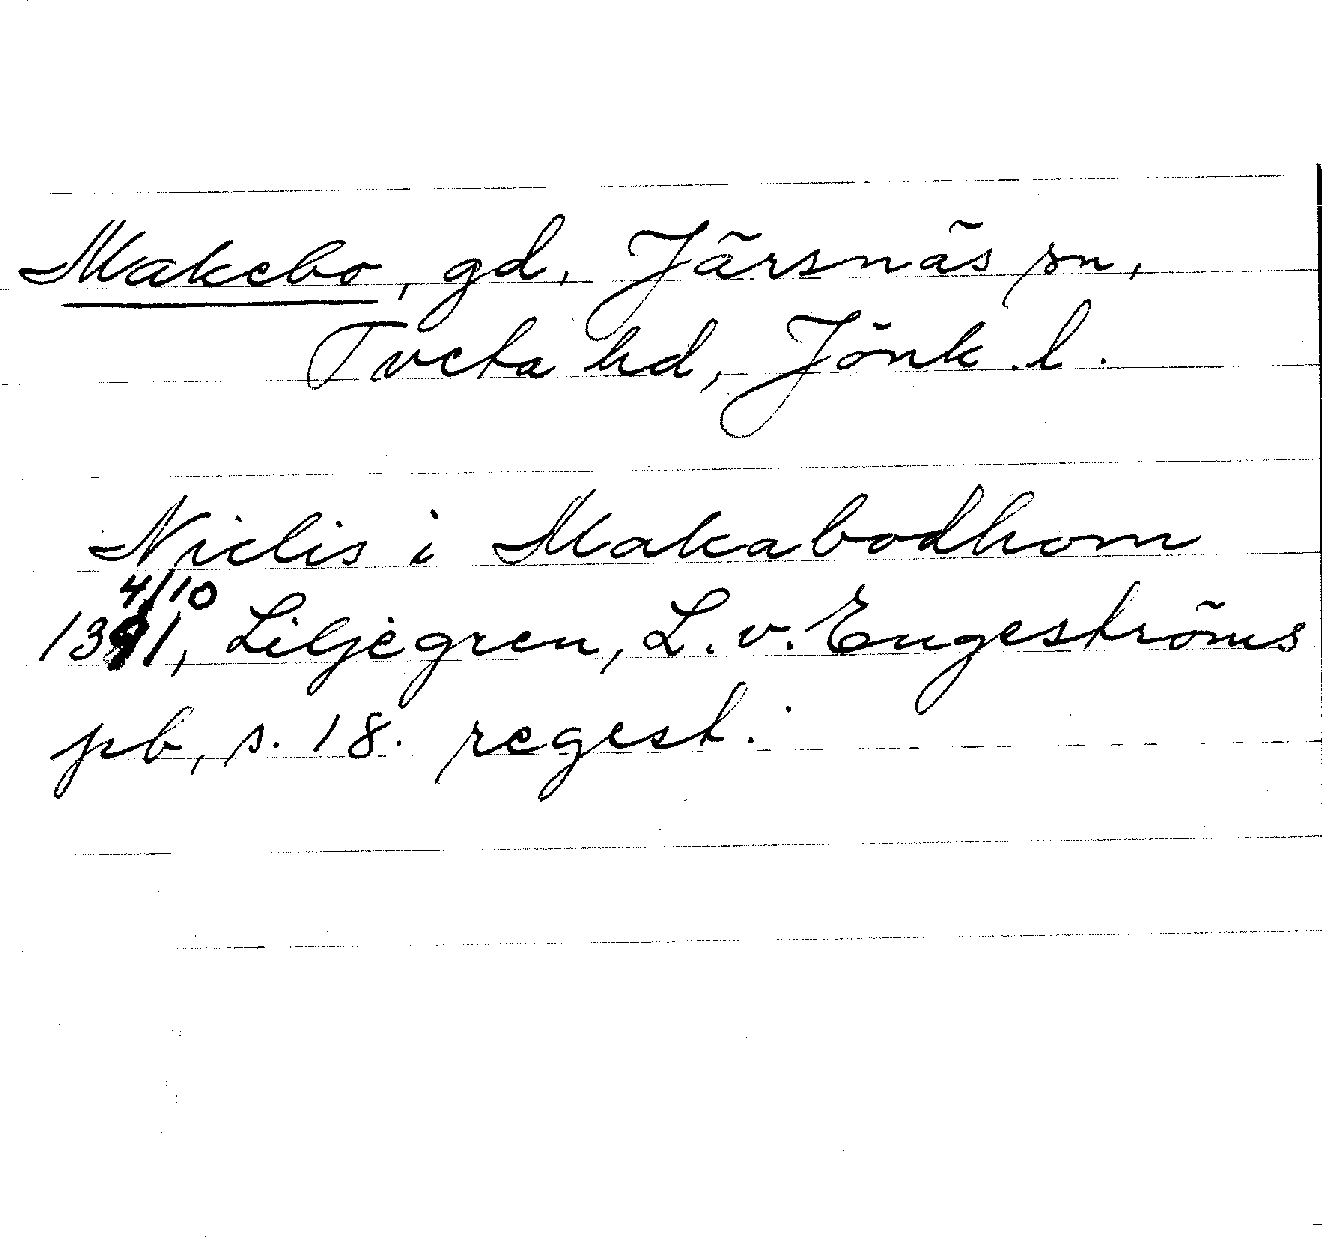 Makebo, gd, Järsnäs sn,
Tveta hd, Jönk. l.
Niclis i Makabodhom
4/10
1391, Liljegren, L. v. Engeströms
pb, s. 18. regest.